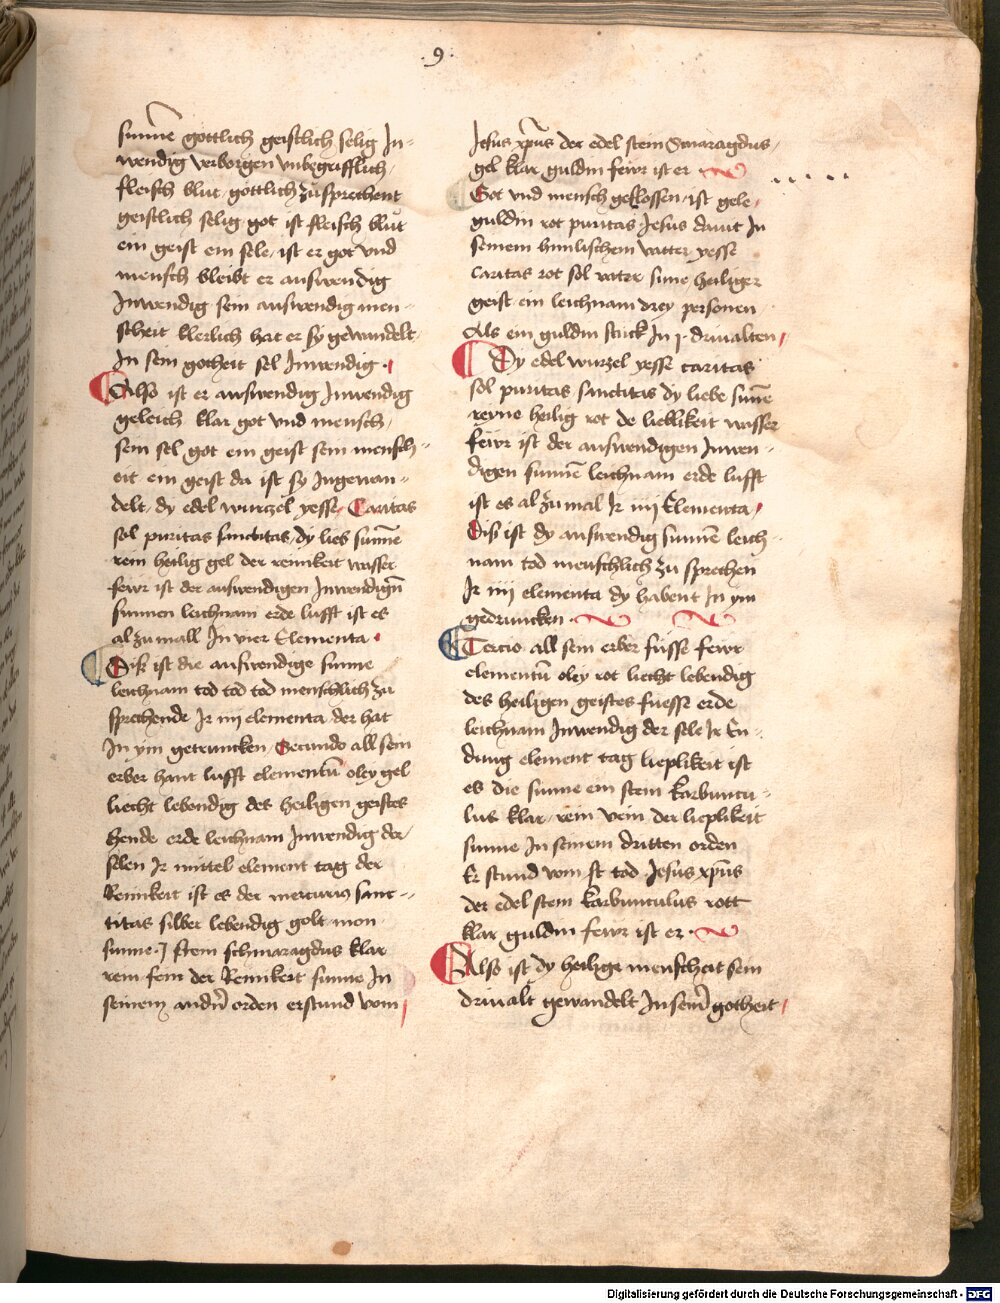 .9.
sunne gottlich geistlich selig In-
wendig verborgen unbegrifflich
fleisch blut gottlich zu sprechent
geistlich selig got ist fleisch blut
ein geist ein sele, ist er got vnd
mensch bleibt er auswendig
Inwendig sein auswendig men-
scheit klerlich hat er sy gewandelt
In sein gotheit sel Inwendig.
Also ist er auswendig Inwendig
geleich klar got vnd mensch,
sein sel got ein geist sein mensch-
eit ein geist da ist sy Ingewan-
delt, dy edel wurtzel yesse Caritas
sol puritas sanctitas, dy lieb sunne
rein heilig gel der reinikeit wasser
fewr ist der auswendigen Inwendign
sunnen leichnam erde lufft ist es
alzumall In vier Elementa.
Diß ist die auswendige sunne
leichnam tod tod tod menschlich zu
sprechende Ir iiij elementa der hat
In ym getruncken, Secundo all sein
erber hant lufft elementum oley gel
liecht lebendig des heiligen geistes
hende erde leichnam Inwendig der
selen Ir mittel element tag der
Reinikeit ist es der mercurius sanc-
titas silber lebendig golt mon
sunne. I stein schmaragdus klar
rein fein der Reinikeit sunne In
seinem andern orden erstund vom
Jesus xpus der edel stein Smaragdus,
gel klar guldin fewr ist er
Got vnd mensch geflossen, ist gele
guldin rot puritas Jesus damit In
seinem himlischem vatter yesse
Caritas rot sol vater sune heiliger
geist ein leichnam drey personen
Als ein guldin stuck In j. driualten
Dy edel wurzel yesse caritas
sol puritas sanctitas dy liebe sunne
reyne heilig rot de lieblikeit wasser
fewr ist der auswendigen Inwen-
digen sunnen leichnam erde lufft
ist es alzumal Ir iiij Elementa,
Diß ist dy auswendig sunnen leich-
nam tod menschlich zu sprechen
Ir iiij elementa dy habent In ym
gedruncken.
Tercio all sein erber fuesse fewr
elementum oley rot liecht lebendig
des heiligen geistes fuesse erde
leichnam Inwendig der sele Ir En-
dung element tag lieplikeit ist
es die sunne ein stein karbuncu-
lus klar, rein vein der lieplikeit
sunne In seinem dritten orden
Er stund vom tod Jesus xpus
der edel stein karbunculus rott
klar guldin fewr ist er.
Also ist dy heilige menscheit sein
driualt gewandelt In seiner gotheit
Digitalisierung gefördert durch die Deutsche Forschungsgemeinschaft - DFG